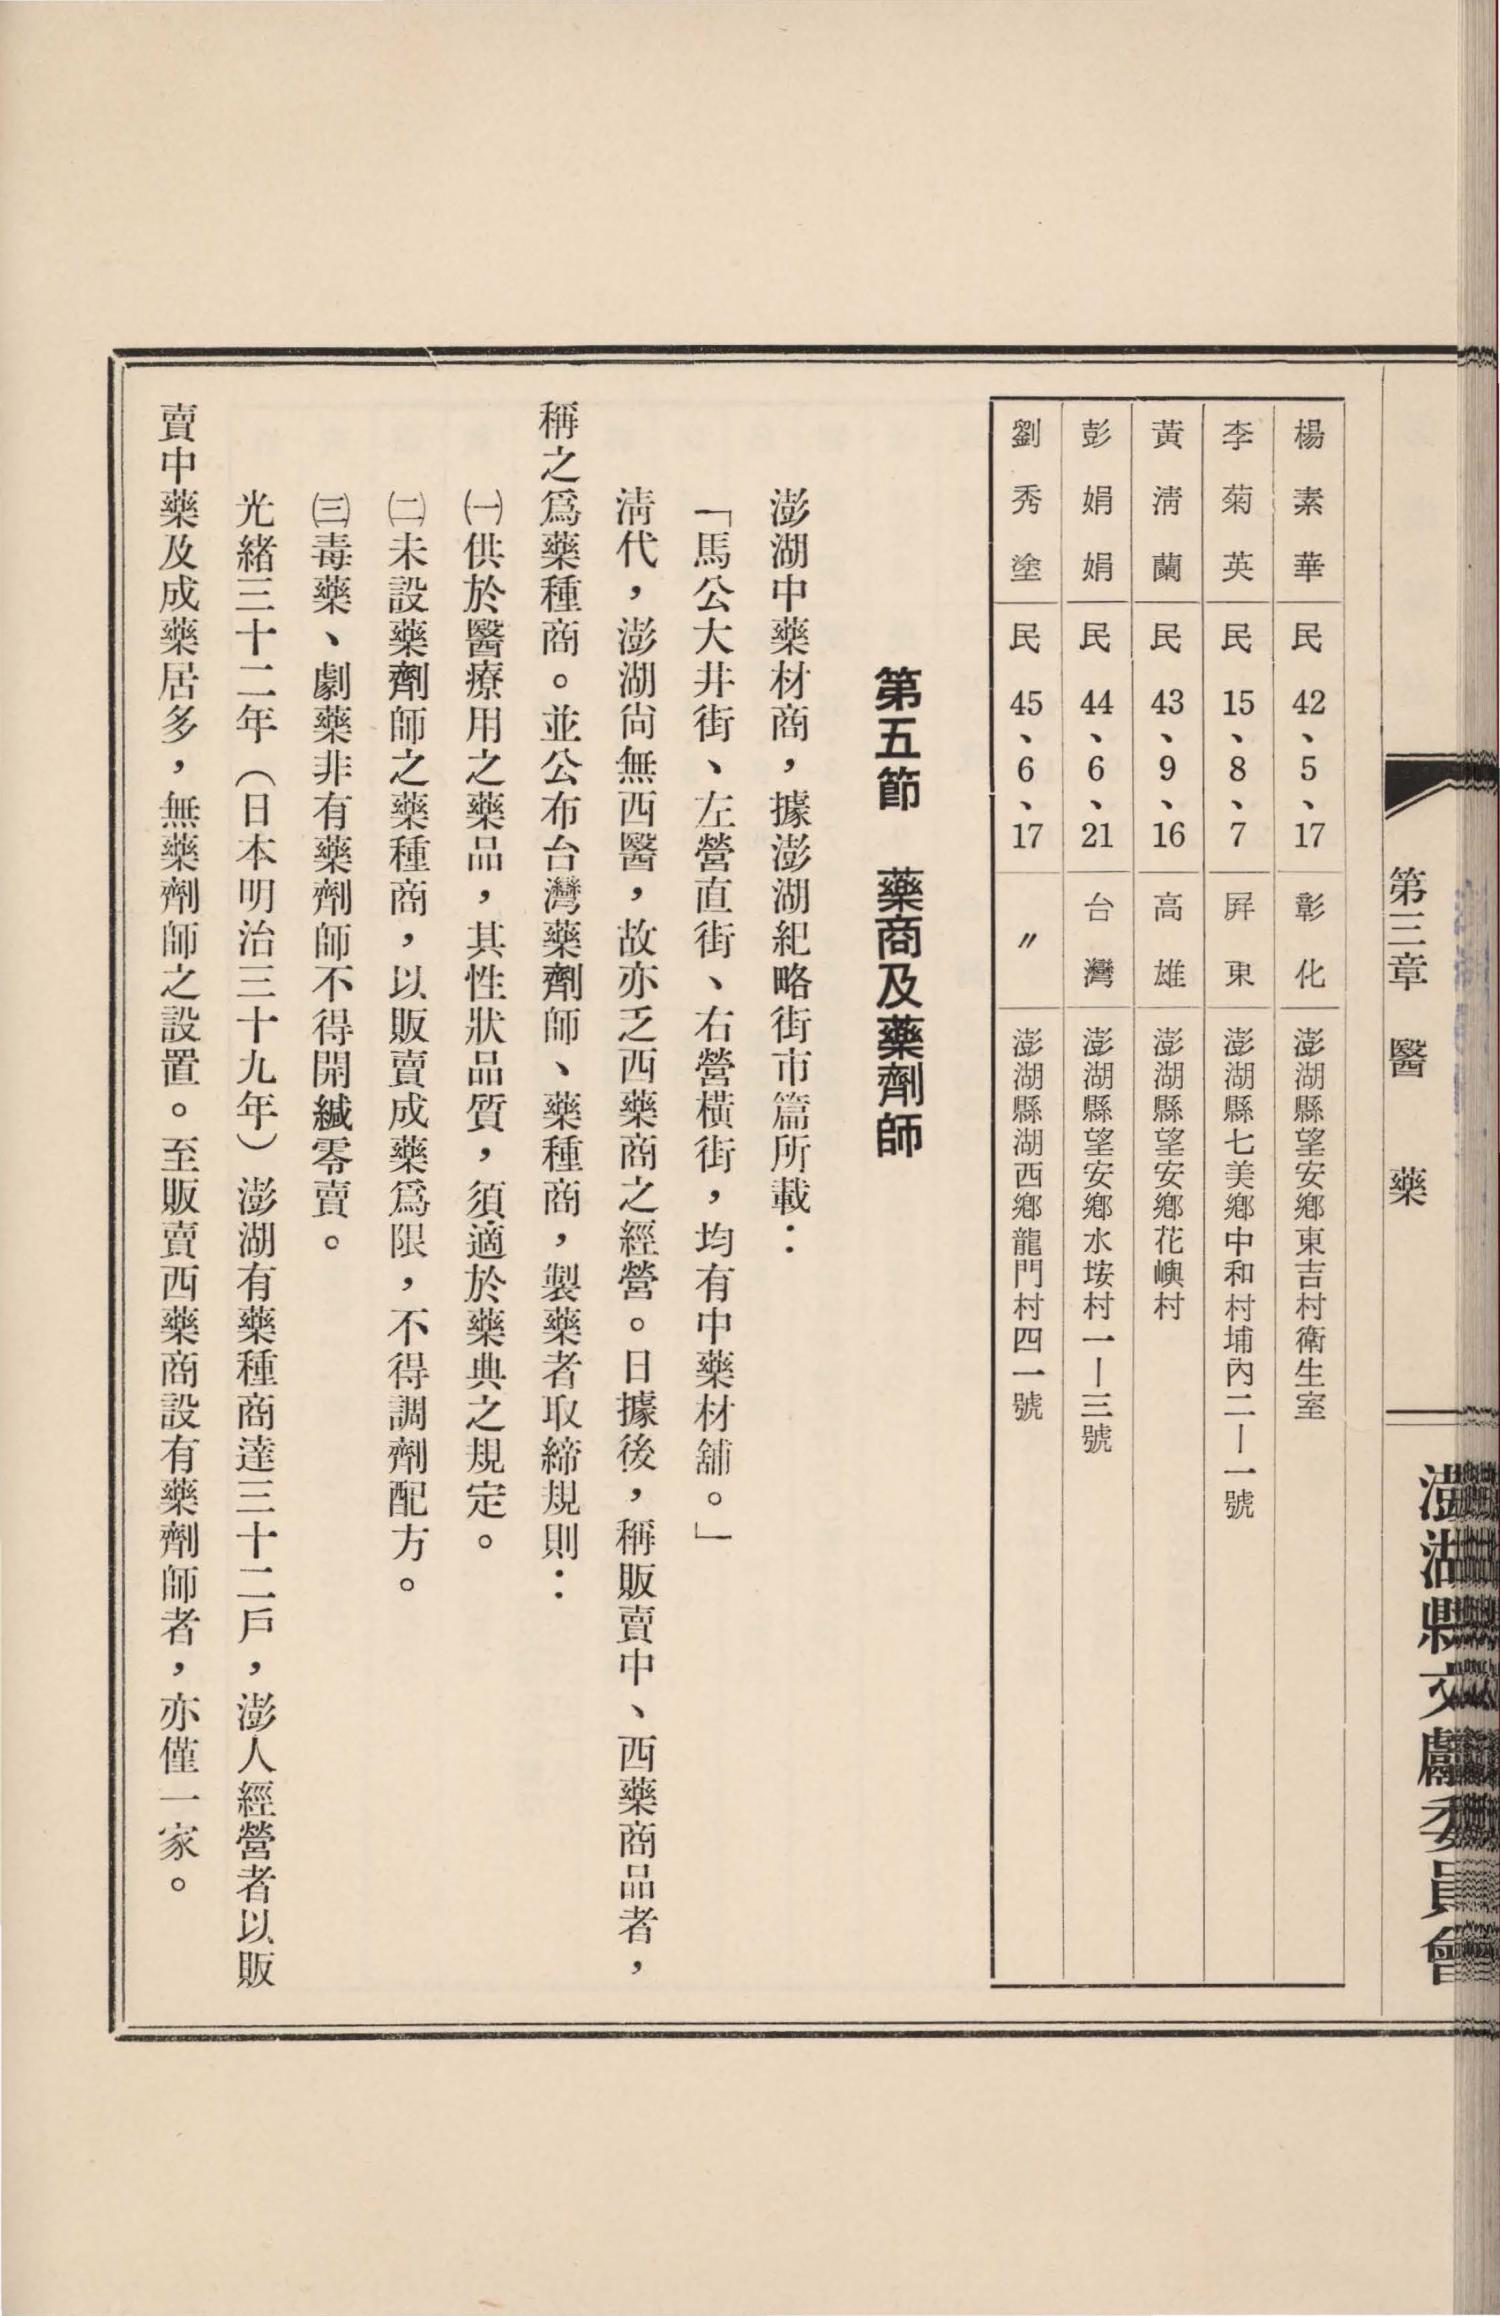 第三章　醫　藥
澎湖縣文獻委員會
楊素華　民42、5、17　彰化　澎湖縣望安鄉東吉村衛生室
李菊英　民15、8、7　屏東　澎湖縣七美鄉中和村埔內二—一號
黃淸蘭　民43、9、16　高雄　澎湖縣望安鄉花嶼村
彭娟娟　民44、6、21　台灣　澎湖縣望安鄉水垵村一—三號
劉秀塗　民45、6、17　〃　澎湖縣湖西鄉龍門村四一號
第五節　藥商及藥劑師
澎湖中藥材商，據澎湖紀略街市篇所載：
「馬公大井街、左營直街、右營橫街，均有中藥材舖。」
淸代，澎湖尙無西醫，故亦乏西藥商之經營。日據後，稱販賣中、西藥商品者，
稱之爲藥種商。並公布台灣藥劑師、藥種商，製藥者取締規則：
㈠供於醫療用之藥品，其性狀品質，須適於藥典之規定。
㈡未設藥劑師之藥種商，以販賣成藥爲限，不得調劑配方。
㈢毒藥、劇藥非有藥劑師不得開緘零賣。
光緒三十二年（日本明治三十九年）澎湖有藥種商達三十二戶，澎人經營者以販
賣中藥及成藥居多，無藥劑師之設置。至販賣西藥商設有藥劑師者，亦僅一家。